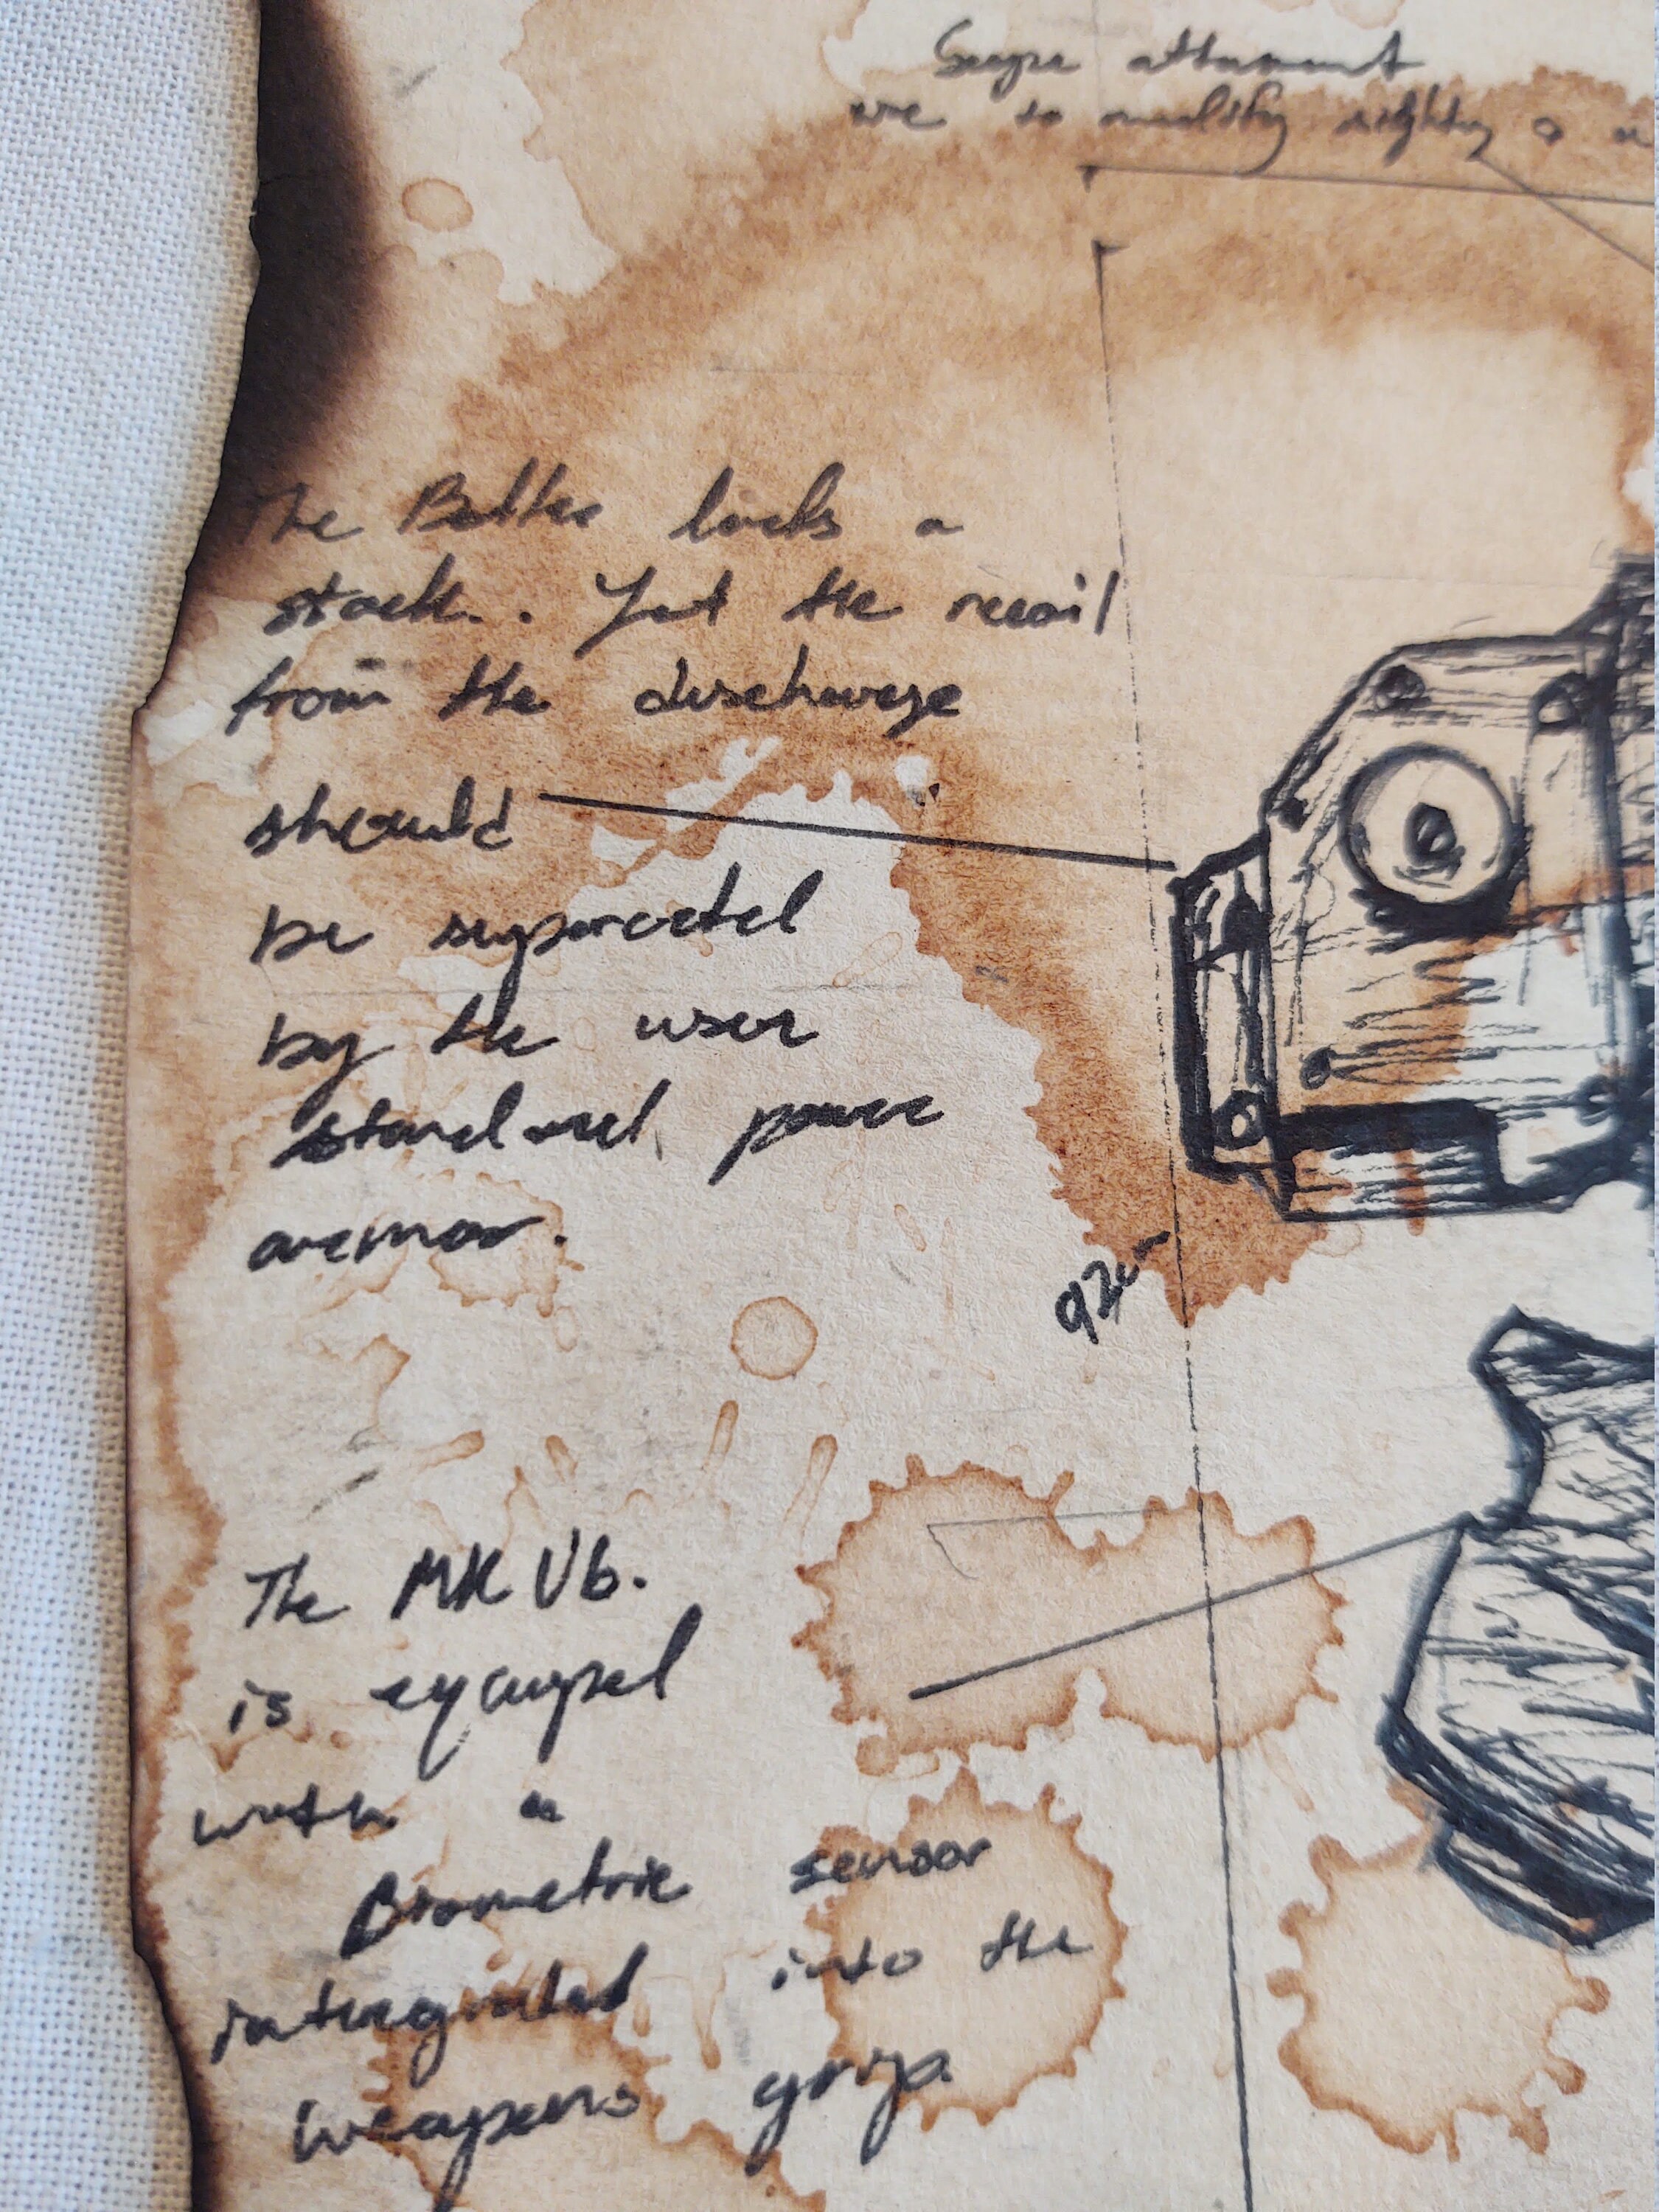 attament
to modify
The Bolter lacks a
stock. Yet the recoil
from the discharge
should
be seperated
by the user
standard power
armor.
92cm
The MK Vb.
is equiped
with a
Biometric sensor
intergrated into the
weapons grip